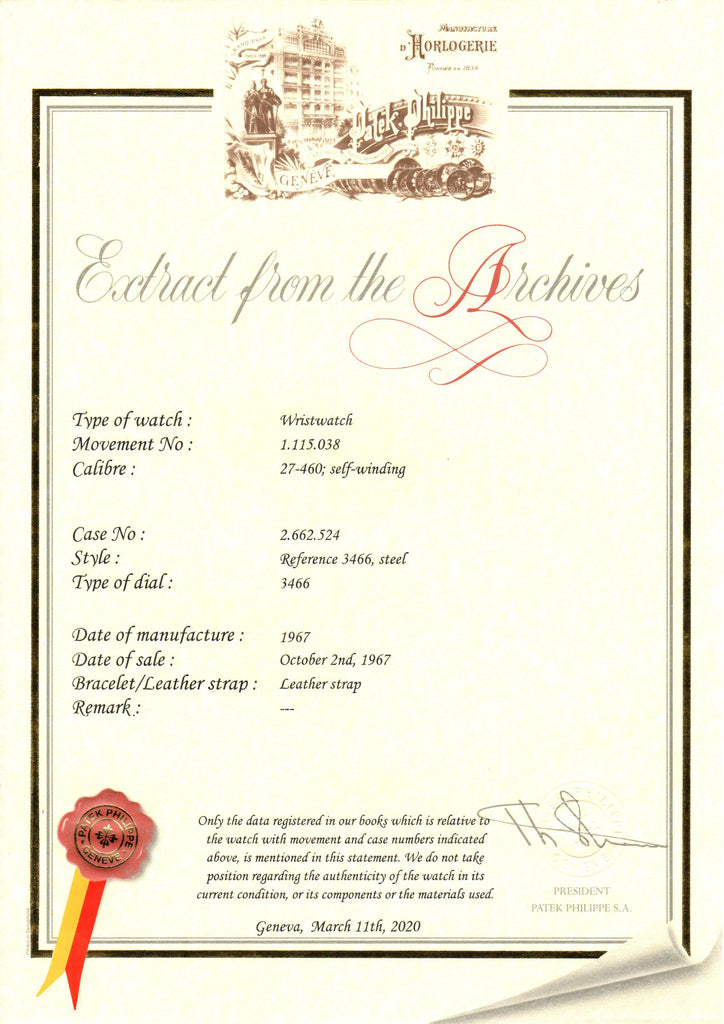 GRAND PRIX
MANUFACTURE
D'HORLOGERIE
FONDÉE EN 1839
Patek. Philippe
GENÈVE
Extract from the Archives
Type of watch : Wristwatch
Movement No : 1.115.038
Calibre : 27-460; self-winding
Case No : 2.662.524
Style : Reference 3466, steel
Type of dial : 3466
Date of manufacture : 1967
Date of sale : October 2nd, 1967
Bracelet/Leather strap : Leather strap
Remark : ---
PATEK PHILIPPE
GENEVE
Only the data registered in our books which is relative to
the watch with movement and case numbers indicated
above, is mentioned in this statement. We do not take
position regarding the authenticity of the watch in its
current condition, or its components or the materials used.
Geneva, March 11th, 2020
PRESIDENT
PATEK PHILIPPE S.A.